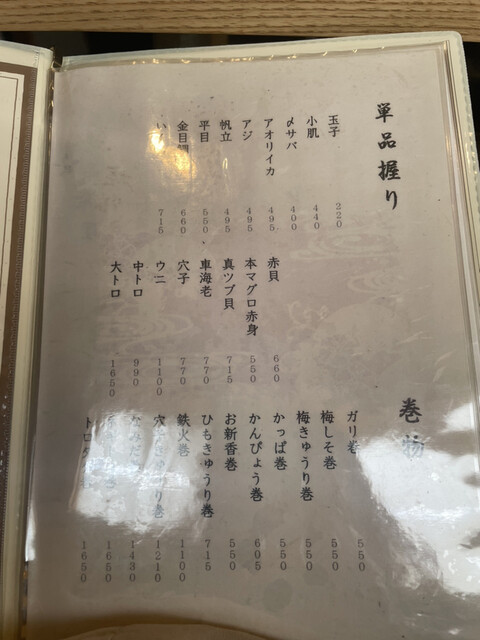 単品握り
玉子 220
小肌 440
〆サバ 400
アオリイカ 495
アジ 495
帆立 495
平目 550
金目鯛 660
715
赤貝 660
本マグロ赤身 550
真ツブ貝 715
車海老 770
穴子 770
ウニ 1100
中トロ 990
大トロ 1650
巻物
ガリ巻 550
梅しそ巻 550
梅きゅうり巻 550
かっぱ巻 550
かんぴょう巻 605
お新香巻 550
ひもきゅうり巻 715
鉄火巻 1100
穴きゅうり巻 1210
1430
1650
1650